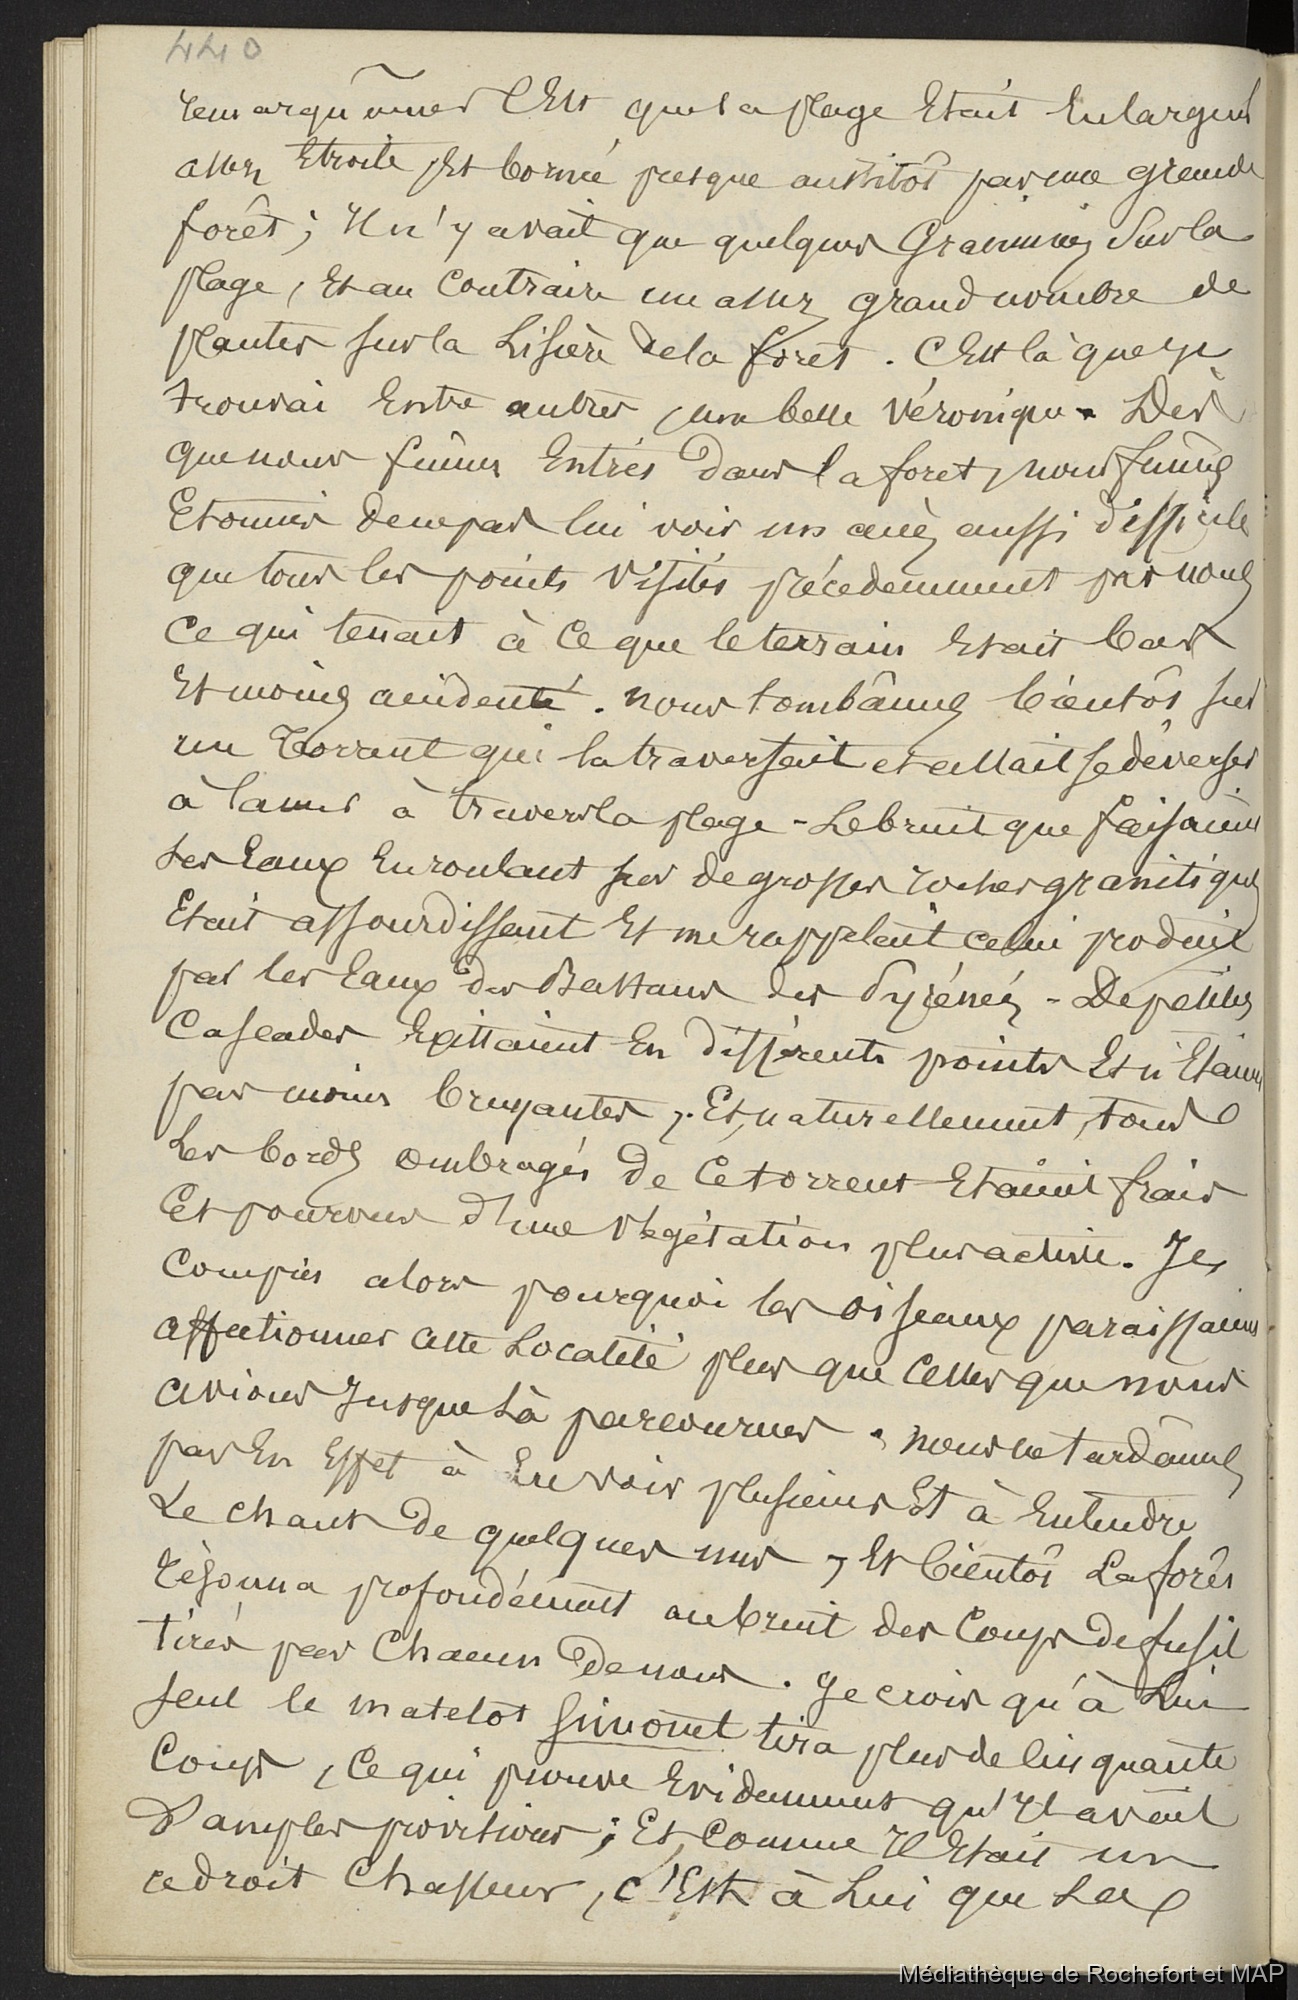 440
remarquâmes C'Est que la plage Etait En largeur
assez Etroite, Et bornée presque aussitôt par une grande
forêt ; Il n'y avait que quelques Graminées Sur la
plage, Et au Contraire un assez grand nombre de
plantes sur la Lisière de la foret. C'Est là que je
trouvai Entre autres, une belle Véronique. Dès
que nous fûmes Entrés Dans la foret, nous fûmes
Etonnés de ne pas lui voir un accès aussi difficile
que tous les points Visités précedemment par nous
Ce qui tenait à Ce que le terrain Etait bas
Et moins accidenté. nous tombâmes bientôt sur
un Torrent qui la traversait et allait se déverser
à la mer à travers la plage - Le bruit que faisaient
ses Eaux En roulant sur de grosses roches granitiques
Etait assourdissant Et me rappelait celui produit
par les Eaux des Bastans des Pyrénées - De petites
Cascades Existaient En différents points Et n'Etaient
pas moins bruyantes, Et, naturellement, tous
Les bords ombragés de Ce torrent Etaient frais
Et pourvus d'une Végétation plus active. Je
Compris alors pourquoi les oiseaux paraissaient
affectionner cette Localité plus que Celles que nous
avions Jusque Là parcourues. nous ne tardâmes
pas En Effet à En voir plusieurs Et à Entendre
Le chant de quelques uns, Et bientôt La forêt
résonna profondément au bruit des Coups de fusil
tirés par Chacun de nous. Je crois qu'à Lui
seul le matelot Simonet tira plus de Cinquante
Coups, Ce qui prouve Evidemment qu'Il avait
D'amples provisions ; Et, Comme Il Etait un
adroit Chasseur, C'Est à Lui que Les
Médiathèque de Rochefort et MAP